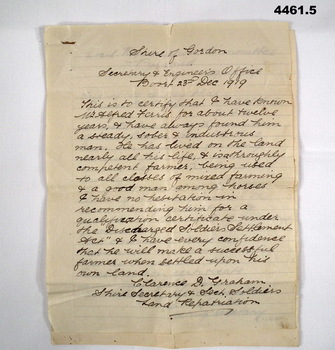 4461.5
Shire of Gordon
Secretary & Engineer's Office
Boort 23rd Dec 1919
This is to certify that I have known
Mr Alfred Faris for about twelve
years, & have always found him
a steady, sober & industrious
man. He has lived on the land
nearly all his life, & is a thoroughly
competent farmer, being used
to all classes of mixed farming
& a good man among horses
I have no hesitation in
recommending him for a
qualification certificate under
the "Discharged Soldiers Settlement
Act" & I have every confidence
that he will make a successful
farmer when settled upon his
own land.
Clarence D. Graham
Shire Secretary & Soldiers
Land Repatriation